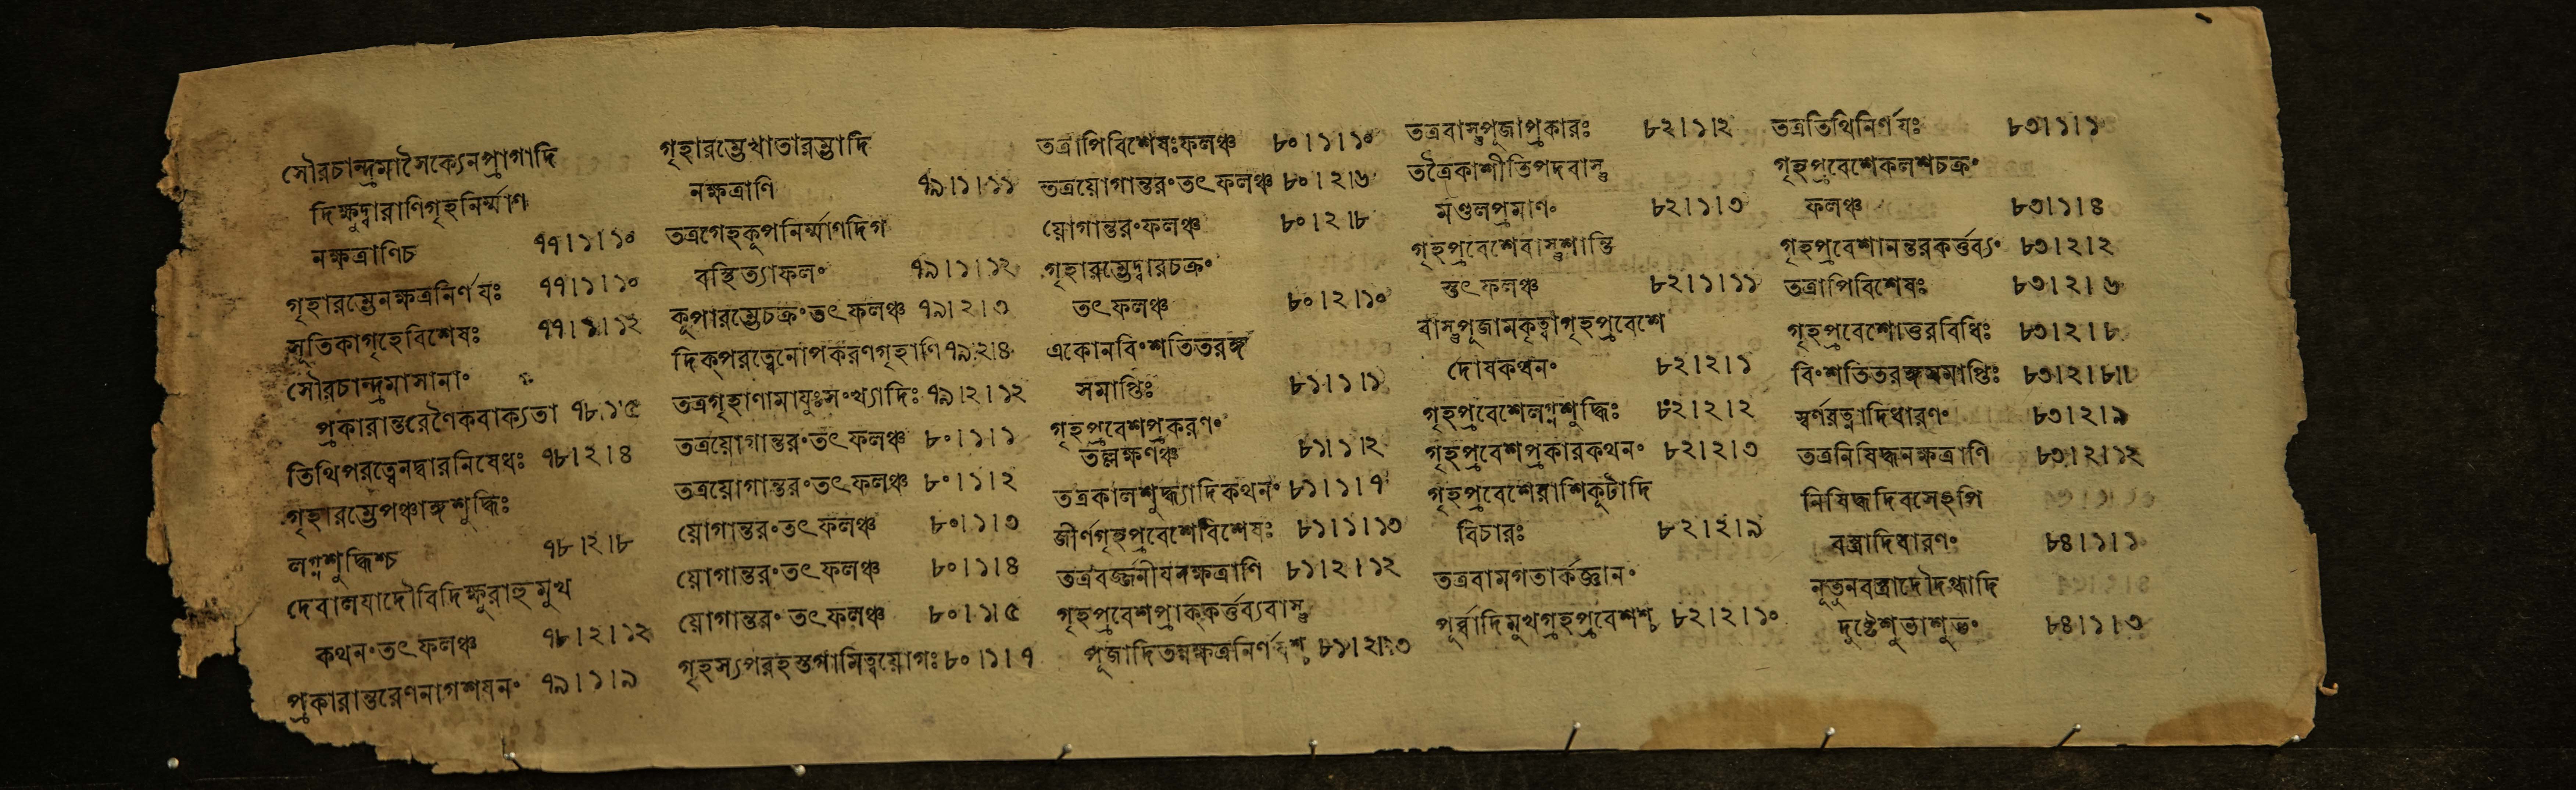 সৌরচান্দ্রমাসৈক্যেনপ্রাগাদি
দিক্ষুদ্বারাণিগৃহনির্ম্মাণ
নক্ষত্রাণিচ ৭৭।১।১০
গৃহারম্ভেনক্ষত্রনির্ণযঃ ৭৭।১।১০
সূতিকাগৃহেবিশেষঃ ৭৭।১।১২
সৌরচান্দ্রমাসানাং
প্রকারান্তরেণৈকবাক্যতা ৭৮।১।৫
তিথিপরত্বেনদ্বারনিষেধঃ ৭৮।২।৪
গৃহারম্ভেপঞ্চাঙ্গশুদ্ধিঃ
লগ্নশুদ্ধিশ্চ ৭৮।২।৮
দেবালযাদৌবিদিক্ষুরাহুমুখ
কথনংতৎফলঞ্চ ৭৮।২।১২
প্রকারান্তরেণনাগশযনং ৭৯।১।৯
গৃহারম্ভেখাতারম্ভাদি
নক্ষত্রাণি ৭৯।১।১১
তত্রগেহকূপনির্ম্মাণদিগ
বস্থিত্যাফলং ৭৯।১।১২
কূপারম্ভেচক্রংতৎফলঞ্চ ৭৯।২।৩
দিক্পরত্বেনোপকরণগৃহাণি ৭৯।২।৪
তত্রগৃহাণামাযুঃসংখ্যাদিঃ ৭৯।২।১২
তত্রয়োগান্তরংতৎফলঞ্চ ৮০।১।১
তত্রয়োগান্তরংতৎফলঞ্চ ৮০।১।২
য়োগান্তরংতৎফলঞ্চ ৮০।১।৩
য়োগান্তরংতৎফলঞ্চ ৮০।১।৪
য়োগান্তরংতৎফলঞ্চ ৮০।১।৫
গৃহস্যপরহস্তগামিত্বয়োগঃ ৮০।১।৭
তত্রাপিবিশেষঃফলঞ্চ ৮০।১।১০
তত্রয়োগান্তরংতৎফলঞ্চ ৮০।২।৬
য়োগান্তরংফলঞ্চ ৮০।২।৮
গৃহারম্ভেদ্বারচক্রং
তৎফলঞ্চ ৮০।২।১০
একোনবিংশতিতরঙ্গ
সমাপ্তিঃ ৮১।১।১
গৃহপ্রবেশপ্রকরণং
তল্লক্ষণঞ্চ ৮১।১।২
তত্রকালশুদ্ধ্যাদিকথনং ৮১।১।৭
জীর্ণগৃহপ্রবেশেবিশেষঃ ৮১।১।১৩
তত্রবর্জ্জনীযনক্ষত্রাণি ৮১।২।১২
গৃহপ্রবেশপ্রাক্কর্ত্তব্যবাস্তু
পূজাদিতন্নক্ষত্রনির্ণযশ্চ ৮১।২।১৩
তত্রবাস্তুপূজাপ্রকারঃ ৮২।১।২
তত্রৈকাশীতিপদবাস্তু
মণ্ডলপ্রমাণং ৮২।১।৩
গৃহপ্রবেশেবাস্তুশান্তি
স্তৎফলঞ্চ ৮২।১।১১
বাস্তুপূজামকৃত্বাগৃহপ্রবেশে
দোষকথনং ৮২।২।১
গৃহপ্রবেশেলগ্নশুদ্ধিঃ ৮২।২।২
গৃহপ্রবেশপ্রকারকথনং ৮২।২।৩
গৃহপ্রবেশেরাশিকূটাদি
বিচারঃ ৮২।২।৯
তত্রবামগতার্কজ্ঞানং
পূর্ব্বাদিমুখগৃহপ্রবেশশ্চ ৮২।২।১০
তত্রতিথিনির্ণযঃ ৮৩।১।১
গৃহপ্রবেশেকলশচক্রং
ফলঞ্চ ৮৩।১।৪
গৃহপ্রবেশানন্তরকর্ত্তব্যং ৮৩।২।২
তত্রাপিবিশেষঃ ৮৩।২।৬
গৃহপ্রবেশোত্তরবিধিঃ ৮৩।২।৮
বিংশতিতরঙ্গসমাপ্তিঃ ৮৩।২।৮॥
স্বর্ণরত্নাদিধারণং ৮৩।২।৯
তত্রনিষিদ্ধনক্ষত্রাণি ৮৩।২।১২
নিষিদ্ধদিবসেঽপি
বস্ত্রাদিধারণং ৮৪।১।১
নূতুনবস্ত্রাদৌদগ্ধাদি
দুষ্টেশুভাশুভং ৮৪।১।৩